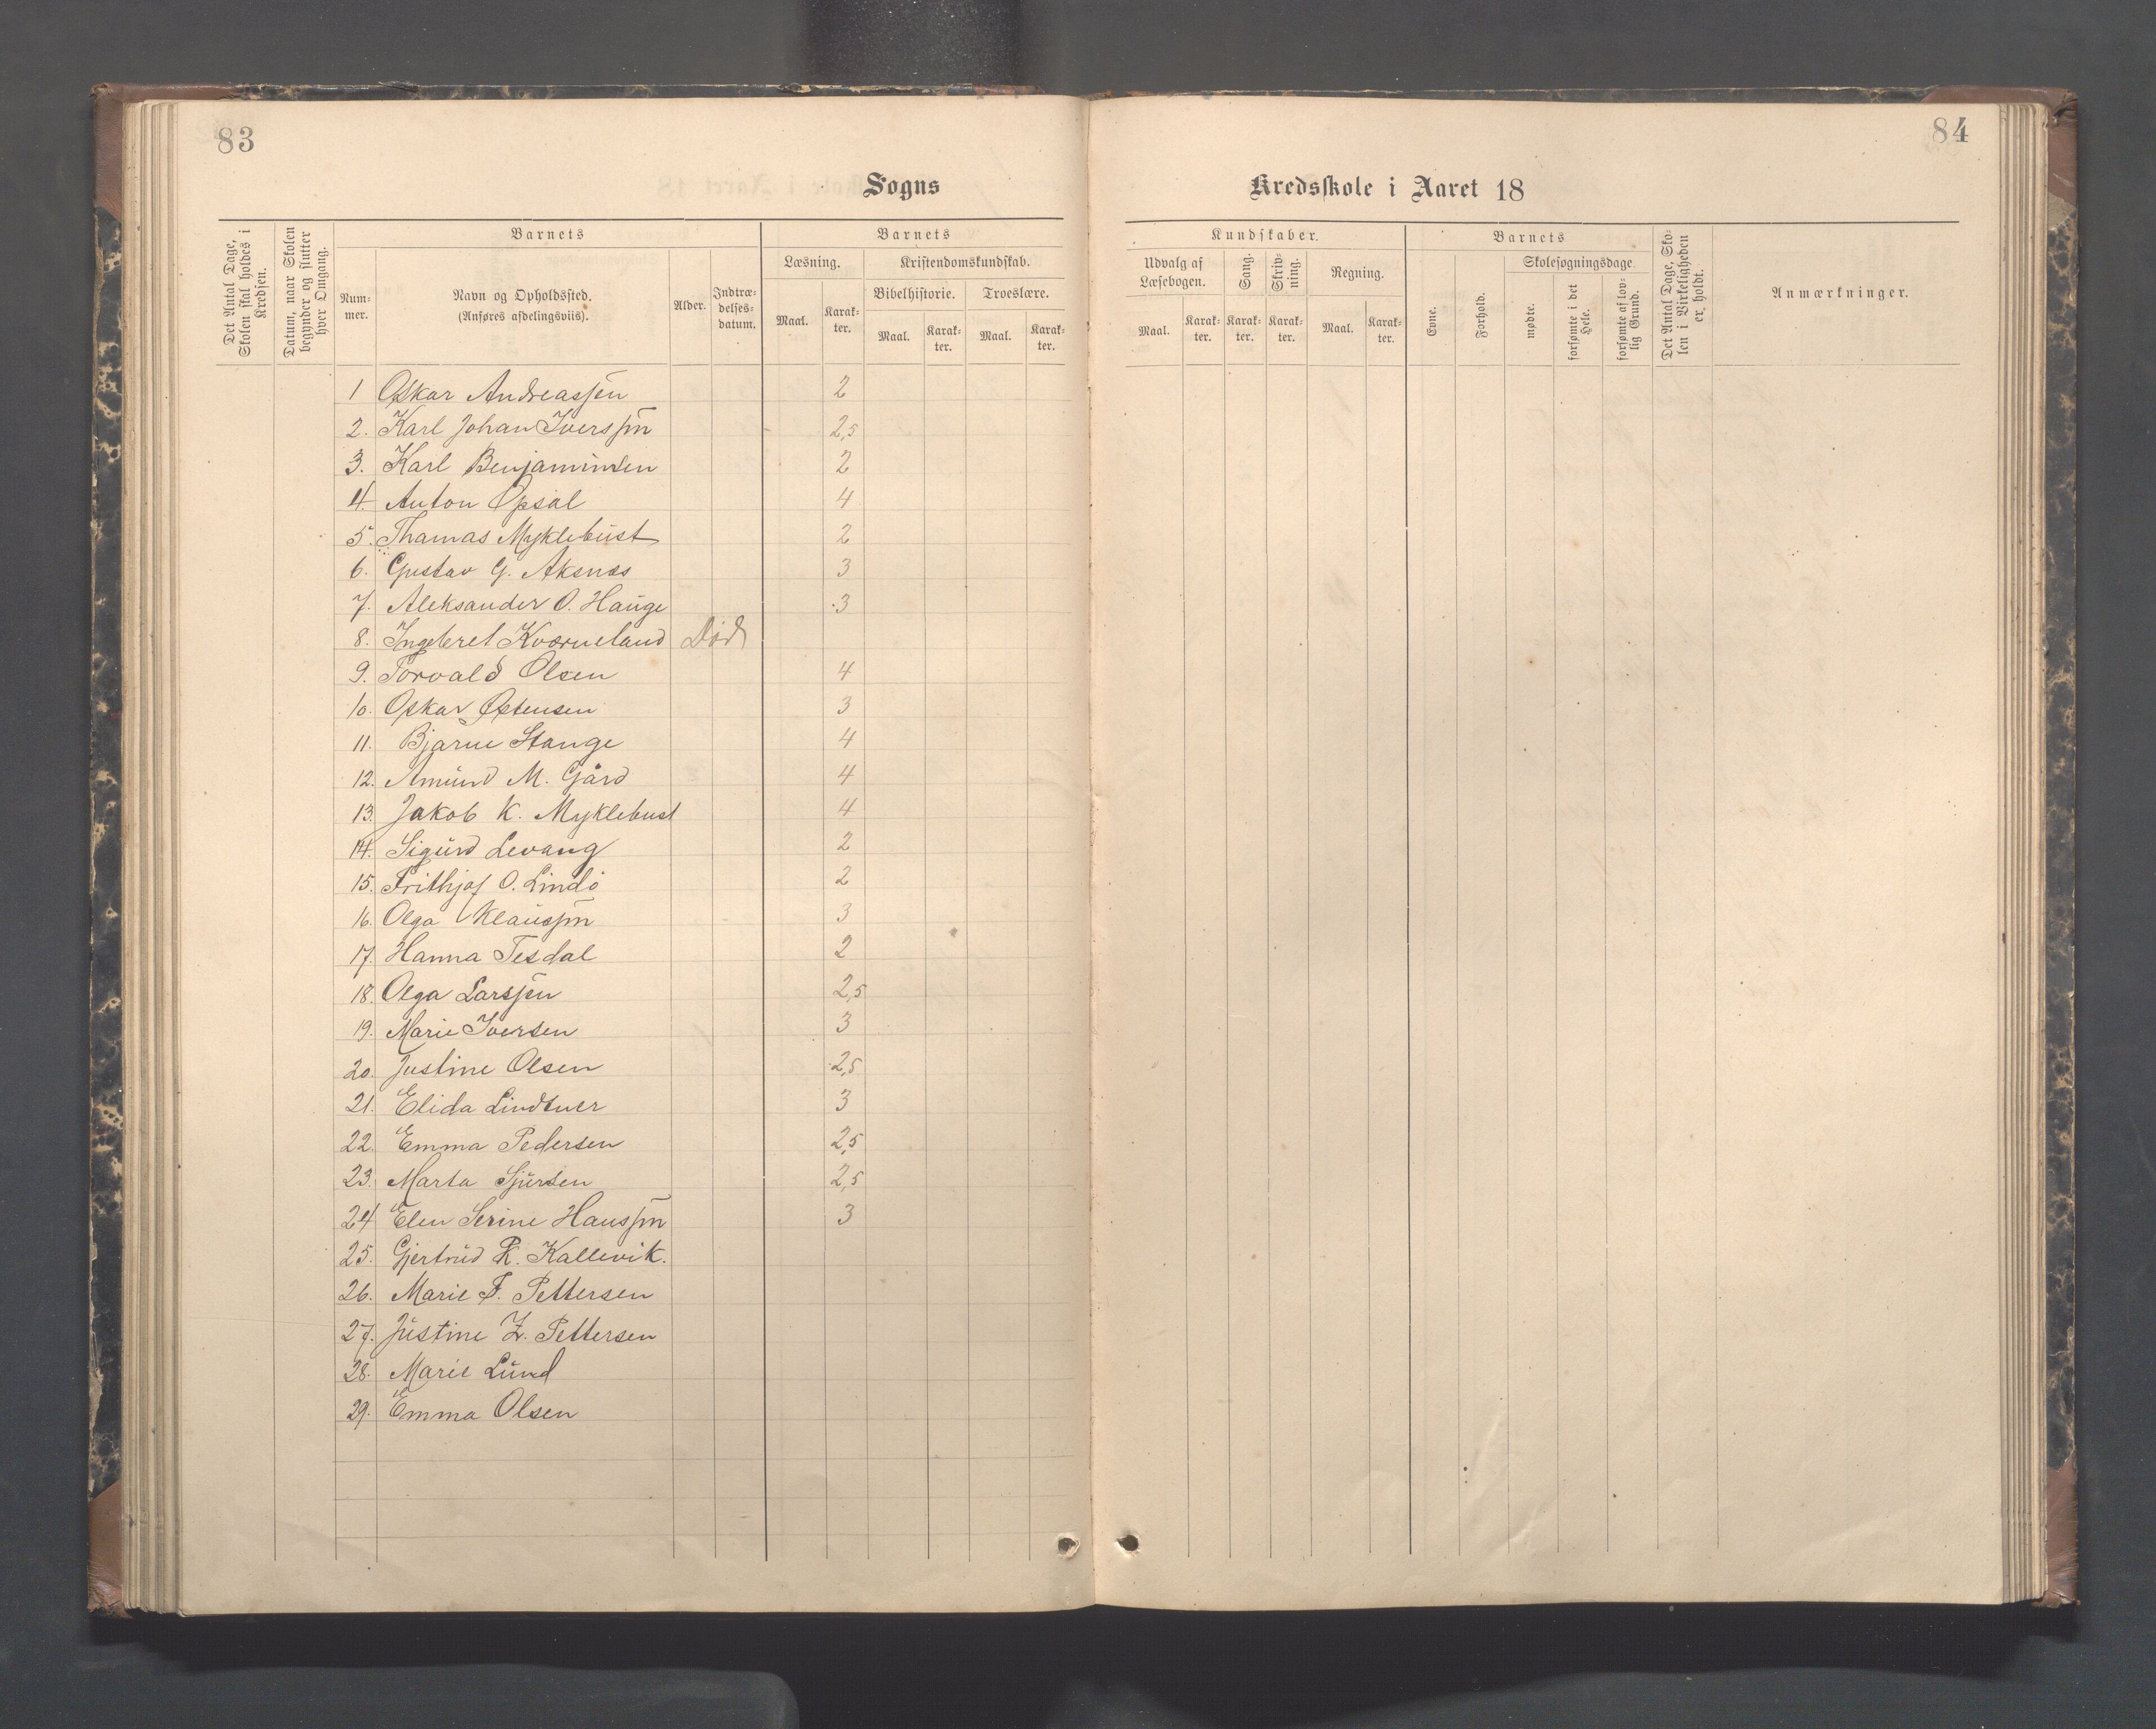 83
84
Sogns
Kredsskole i Aaret 18
Det Antal Dage, Skolen skal holdes i Kredsen.
Datum, naar Skolen begynder og slutter hver Omgang.
Barnets
Nummer.
Navn og Opholdssted.
(Anføres afdelingsviis).
Alder.
Indtrædelsesdatum.
Barnets
Læsning.
Maal.
Karakter.
Kristendomskundskab.
Bibelhistorie.
Maal.
Karakter.
Troeslære.
Maal.
Karakter.
Kundskaber.
Udvalg af Læsebogen.
Maal.
Karakter.
Sang.
Karakter.
Skrivning.
Karakter.
Regning.
Maal.
Karakter.
Barnets
Evne.
Forhold.
Skolesøgningsdage.
mødte.
forsømte i det Hele.
forsømte af lovlig Grund.
Det Antal Dage, Skolen i Virkeligheden er holdt.
Anmærkninger.
1 Oskar Andreassen 2
2. Karl Johan Iverssen 2,5
3. Karl Benjaminsen 2
4. Anton Opsal 4
5. Thomas Myklebust 2
6. Gustav G. Aksnes 3
7. Aleksander O. Hauge 3
8. Ingebret Kværneland Død
9. Torvald Olsen 4
10. Oskar Østensen 3
11. Bjarne Stange 4
12. Amund M. Gård 4
13. Jakob K. Myklebust 4
14. Sigurd Levang 2
15. Frithjof O. Lindö 2
16. Olga Klaussen 3
17. Hanna Tesdal 2
18. Olga Larssen 2,5
19. Marie Iversen 3
20. Justine Olsen 2,5
21. Elida Lindtner 3
22. Emma Pedersen 2,5
23. Marta Sjursen 2,5
24 Elen Serine Hanssen 3
25. Gjertrud R. Kallevik.
26. Marie F. Pettersen
27. Justine Z. Pettersen
28. Marie Lund
29. Emma Olsen